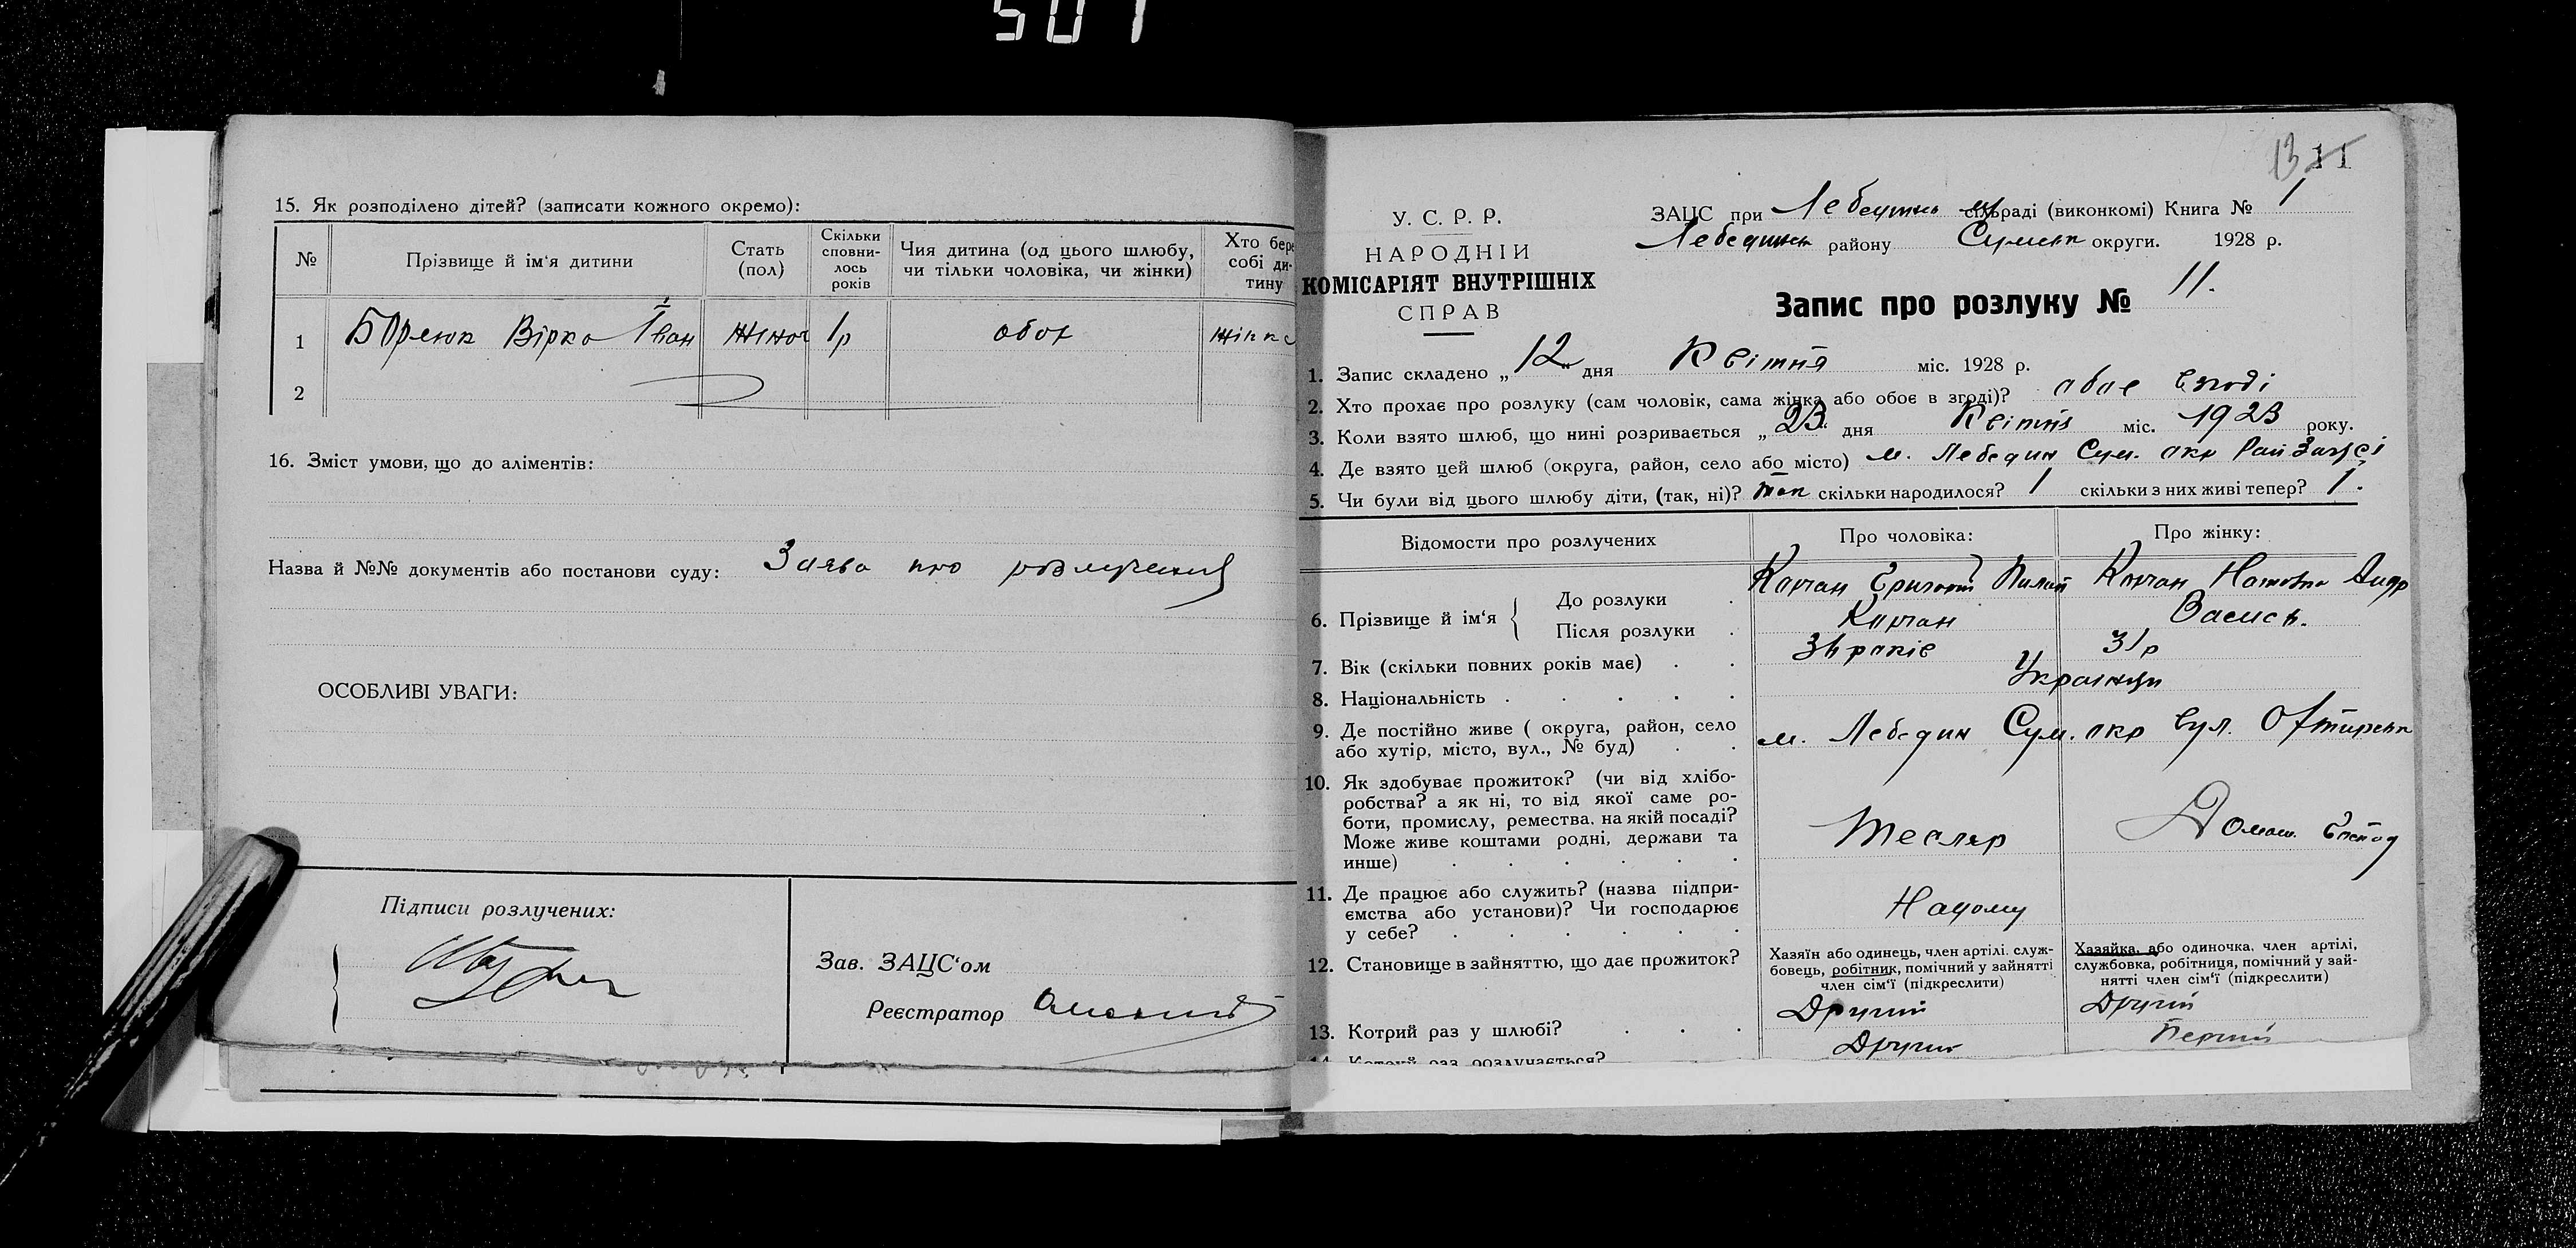 501
15. Як розподілено дітей? (записати кожного окремо):
№ Прізвище й ім'я дитини Стать (пол) Скільки сповнилось років Чия дитина (од цього шлюбу, чи тільки чоловіка, чи жінки) Хто бере собі дитину
1 Вірка Іван жіноч 1р обох жінка
2
16. Зміст умови, що до аліментів:
Назва й №№ документів або постанови суду: Заява про розлучення
ОСОБЛИВІ УВАГИ:
Підписи розлучених:
Зав. ЗАЦС'ом
Реєстратор
13 11
У. С. Р. Р.
НАРОДНІЙ
КОМІСАРІЯТ ВНУТРІШНІХ
СПРАВ
ЗАЦС при сільраді (виконкомі) Книга № 1
Лебединськ району Сумськ округи. 1928 р.
Запис про розлуку № 11.
1. Запис складено „12" дня Квітня міс. 1928 р.
2. Хто прохає про розлуку (сам чоловік, сама жінка або обоє в згоді)? обоє в згоді
3. Коли взято шлюб, що нині розривається „23" дня Квітня міс. 1923 року.
4. Де взято цей шлюб (округа, район, село або місто) м. Лебедин Сум. окр Рай Загсі
5. Чи були від цього шлюбу діти, (так, ні)? так скільки народилося? 1 скільки з них живі тепер? 1.
Відомости про розлучених Про чоловіка: Про жінку:
6. Прізвище й ім'я
До розлуки Корчан Григор Пилип Корчан Андр
Після розлуки Корчан
7. Вік (скільки повних років має) років 31р
8. Національність Українци
9. Де постійно живе ( округа, район, село
або хутір, місто, вул., № буд) м. Лебедин Сум. окр вул. Охтирськ
10. Як здобуває прожиток? (чи від хлібо-
робства? а як ні, то від якої саме ро-
боти, промислу, ремества, на якій посаді?
Може живе коштами родні, держави та
инше)
Тесляр Домаш. Господ
11. Де працює або служить? (назва підпри-
ємства або установи)? Чи господарює
у себе?
Надому
12. Становище в зайняттю, що дає прожиток?
Хазяїн або одинець, член артілі, служ-
бовець, робітник, помічний у зайнятті
член сім'ї (підкреслити)
Хазяйка, або одиночка, член артілі,
службовка, робітниця, помічний у зай-
нятті член сім'ї (підкреслити)
13. Котрий раз у шлюбі? Другий Другий
14. Котрий раз розлучається? Другий Перший